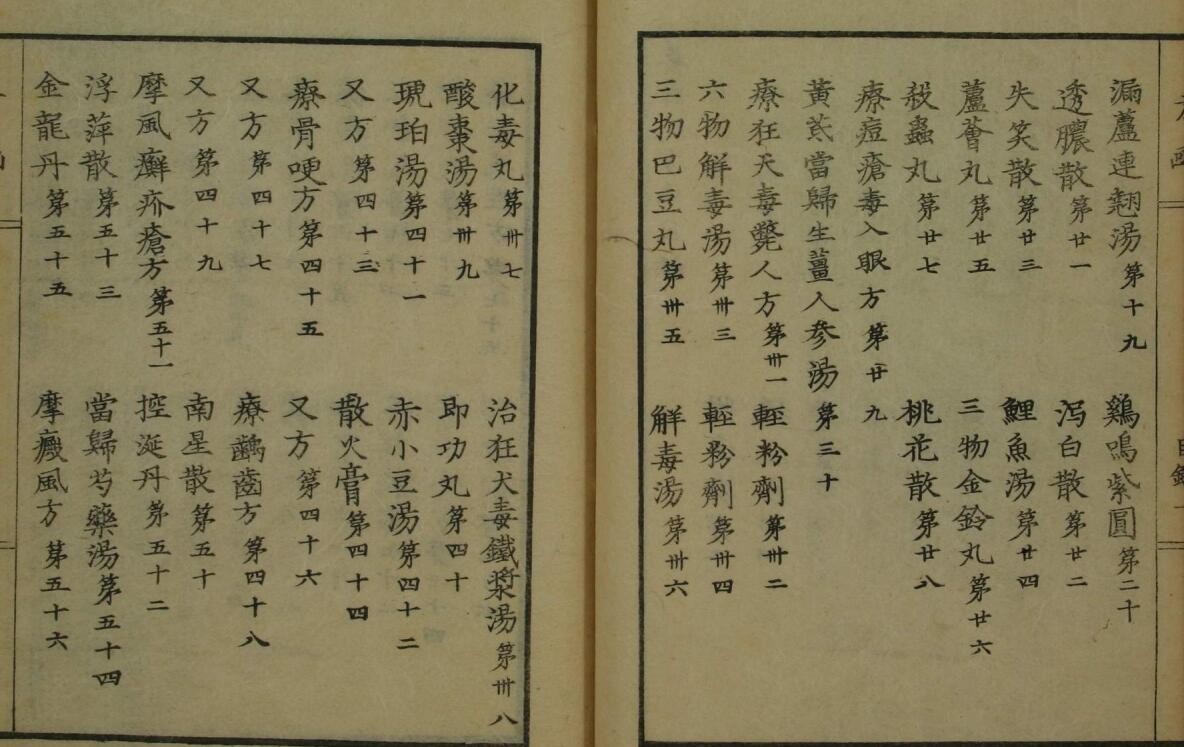 漏蘆連翹湯第十九 鷄鳴紫圓第二十
透膿散第廿一 瀉白散第廿二
失笑散第廿三 鯉魚湯第廿四
蘆薈丸第廿五 三物金鈴丸第廿六
殺蟲丸第廿七 桃花散第廿八
療痘瘡毒入眼方第廿九
黃芪當歸生薑人參湯第三十
療狂犬毒斃人方第卅一 輕粉劑第卅二
六物解毒湯第卅三 輕粉劑第卅四
三物巴豆丸第卅五 解毒湯第卅六
化毒丸第卅七 治狂犬毒鐵漿湯第卅八
酸棗湯第卅九 即功丸第四十
琥珀湯第四十一 赤小豆湯第四十二
又方第四十三 散火膏第四十四
療骨哽方第四十五 又方第四十六
又方第四十七 療齲齒方第四十八
又方第四十九 南星散第五十
摩風癬疥瘡方第五十一 控涎丹第五十二
浮萍散第五十三 當歸芍藥湯第五十四
金龍丹第五十五 摩癜風方第五十六